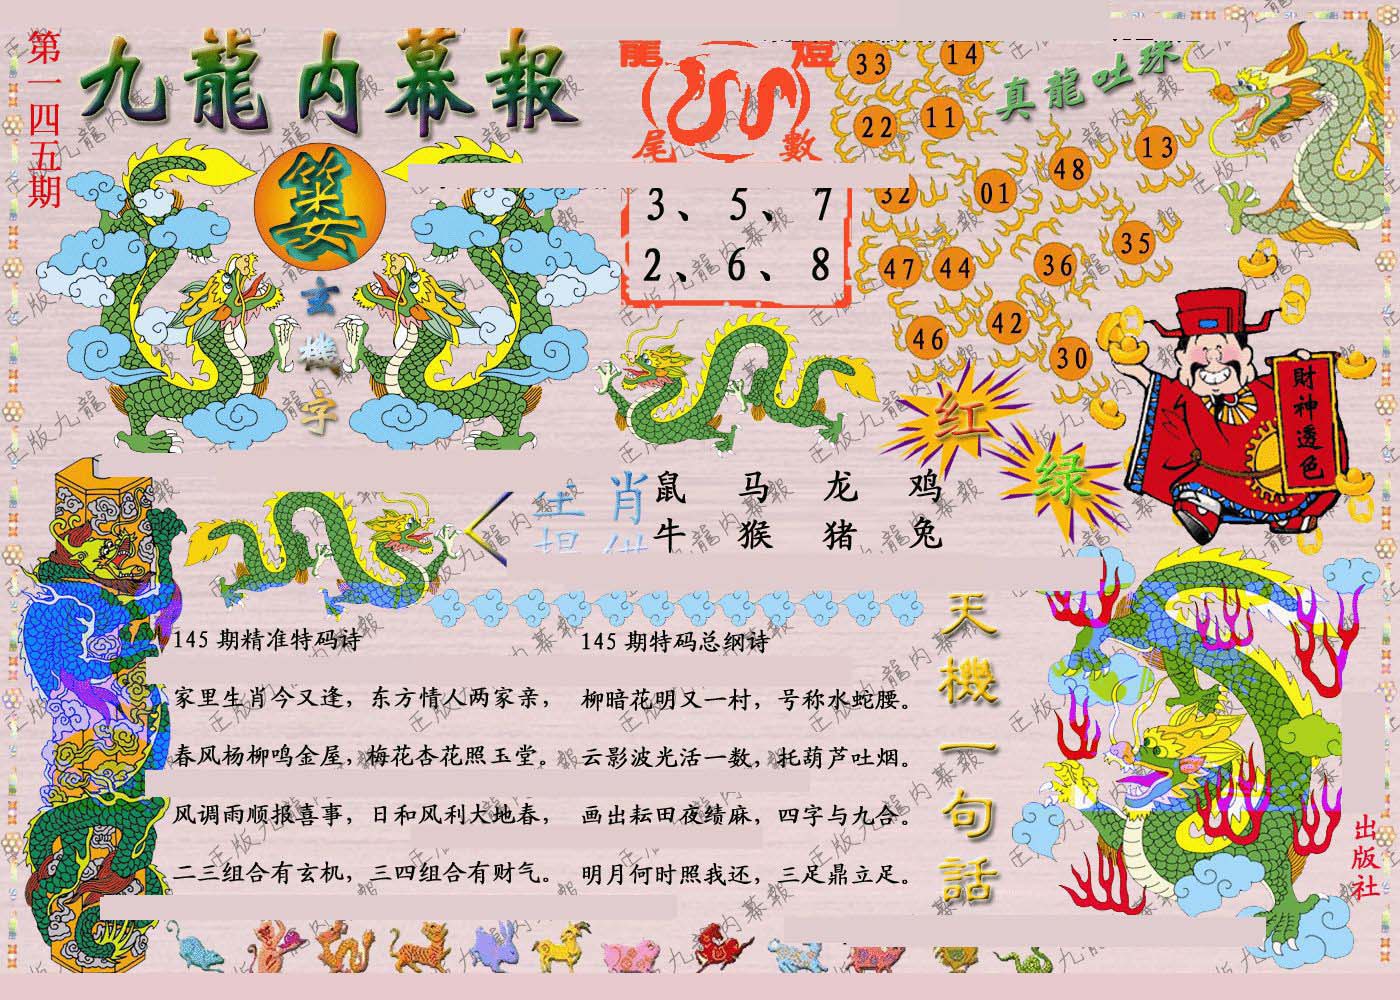 第一四五期
九龍内幕報
玄機字
龍燈
尾數
3、5、7
2、6、8
真龍吐珠
33 14
22 11
48 13
32 01
47 44 36 35
46 42 30
红
绿
財神透色
肖
鼠 马 龙 鸡
牛 猴 猪 兔
145 期精准特码诗
家里生肖今又逢，东方情人两家亲，
春风杨柳鸣金屋，梅花杏花照玉堂。
风调雨顺报喜事，日和风利大地春，
二三组合有玄机，三四组合有财气。
145 期特码总纲诗
柳暗花明又一村，号称水蛇腰。
云影波光活一数，托葫芦吐烟。
画出耘田夜绩麻，四字与九合。
明月何时照我还，三足鼎立足。
天機一句話
出版社
正版九龍内幕報